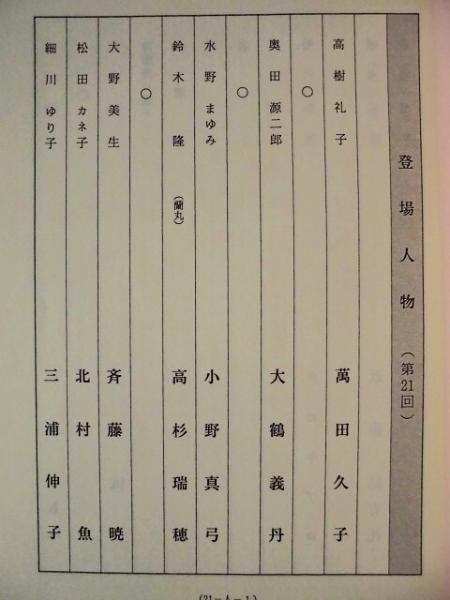 登場人物（第21回）
高樹礼子 萬田久子
○
奥田源二郎 大鶴義丹
○
水野まゆみ 小野真弓
鈴木隆（蘭丸） 高杉瑞穂
○
大野美生 斉藤暁
松田カネ子 北村魚
細川ゆり子 三浦伸子
(21-人-1)